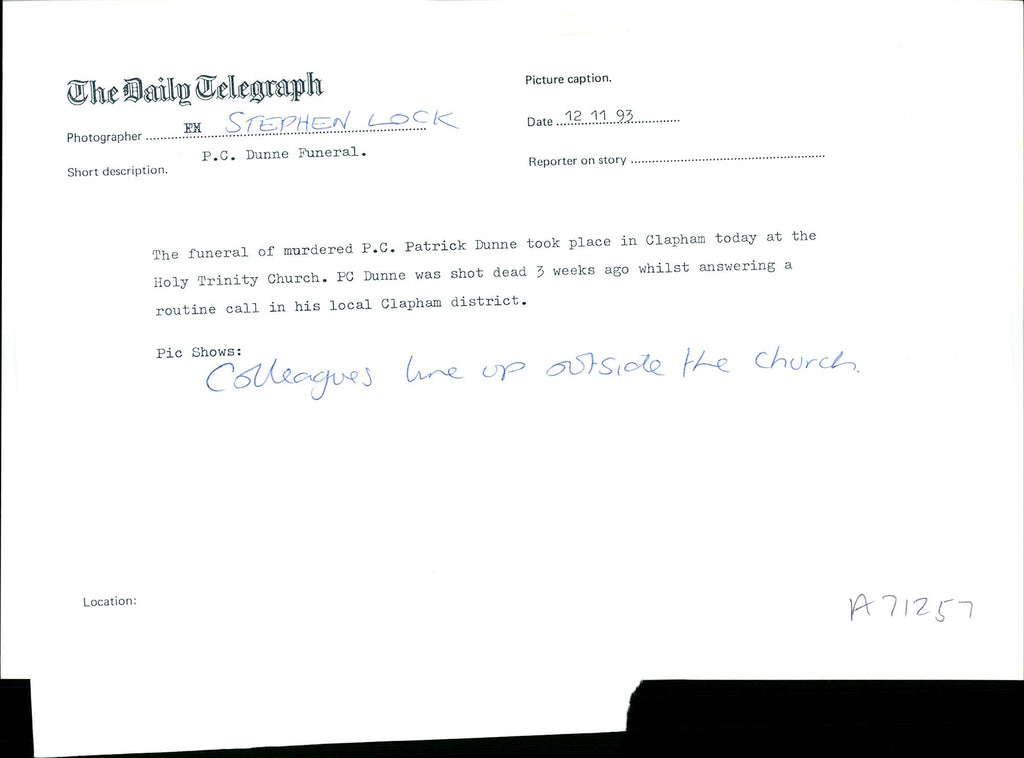 The Daily Telegraph
Picture caption.
Photographer ........ FM STEPHEN LOCK
Date ... 12 11 93 ............
Short description. P.C. Dunne Funeral.
Reporter on story ............................................
The funeral of murdered P.C. Patrick Dunne took place in Clapham today at the
Holy Trinity Church. PC Dunne was shot dead 3 weeks ago whilst answering a
routine call in his local Clapham district.
Pic Shows:
Colleagues line up outside the church.
Location:
A71257